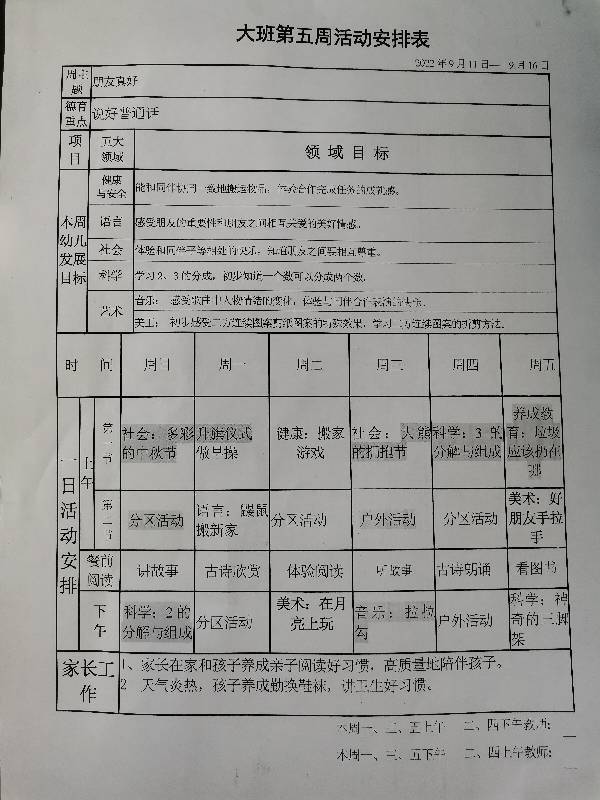 大班第五周活动安排表
2022年9月11日— 9月16日
周主题 朋友真好
德育重点 说好普通话
项目 五大领域 领域目标
本周幼儿发展目标
健康与安全 能和同伴协同一致地搬运物品，体验合作完成任务的成就感。
语言 感受朋友的重要性和朋友之间相互关爱的美好情感。
社会 体验和同伴平等相处的快乐，知道朋友之间要相互尊重。
科学 学习2、3的分成，初步知道一个数可以分成两个数。
艺术 音乐：感受歌曲中人物情绪的变化，体验与同伴合作表演的快乐。
美工：初步感受二方连续图案剪纸图案的与众效果，学习二方连续图案的折剪方法。
时 间 周日 周一 周二 周三 周四 周五
一日活动安排
上午
第一节 社会：多彩的中秋节 升旗仪式做早操 健康：搬家游戏 社会：大熊的拥抱节 科学：3的分解与组成 养成教育：垃圾应该扔在哪
第一节 分区活动 语言：鼹鼠搬新家 分区活动 户外活动 分区活动 美术：好朋友手拉手
餐前阅读 讲故事 古诗欣赏 体验阅读 听故事 古诗朗诵 看图书
下午 科学：2的分解与组成 分区活动 美术：在月亮上玩 音乐：拉拉勾 户外活动 科学：神奇的三脚架
家长工作 1、家长在家和孩子养成亲子阅读好习惯，高质量地陪伴孩子。
2 天气炎热，孩子养成勤换鞋袜，讲卫生好习惯。
本周一、三、五上午 二、四下午教师：
本周一、三、五下午 二、四上午教师：